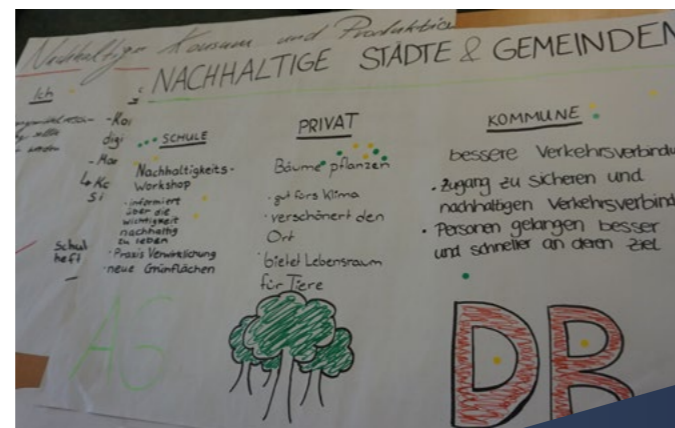 Nachhaltiger Konsum und Produktion
NACHHALTIGE STÄDTE & GEMEINDEN
Ich
digi
SCHULE
Nachhaltigkeits-
Workshop
· informiert
über die
wichtigkeit
nachhaltig
zu leben
· Praxis Verwirklichung
· neue Grünflächen
Schul
heft
AG
PRIVAT
Bäume pflanzen
· gut fürs Klima
· verschönert den
Ort
· bietet Lebensraum
für Tiere
KOMMUNE
bessere Verkehrsverbindu
· Zugang zu sicheren und
nachhaltigen Verkehrsverbind
· Personen gelangen besser
und schneller an deren Ziel
DB